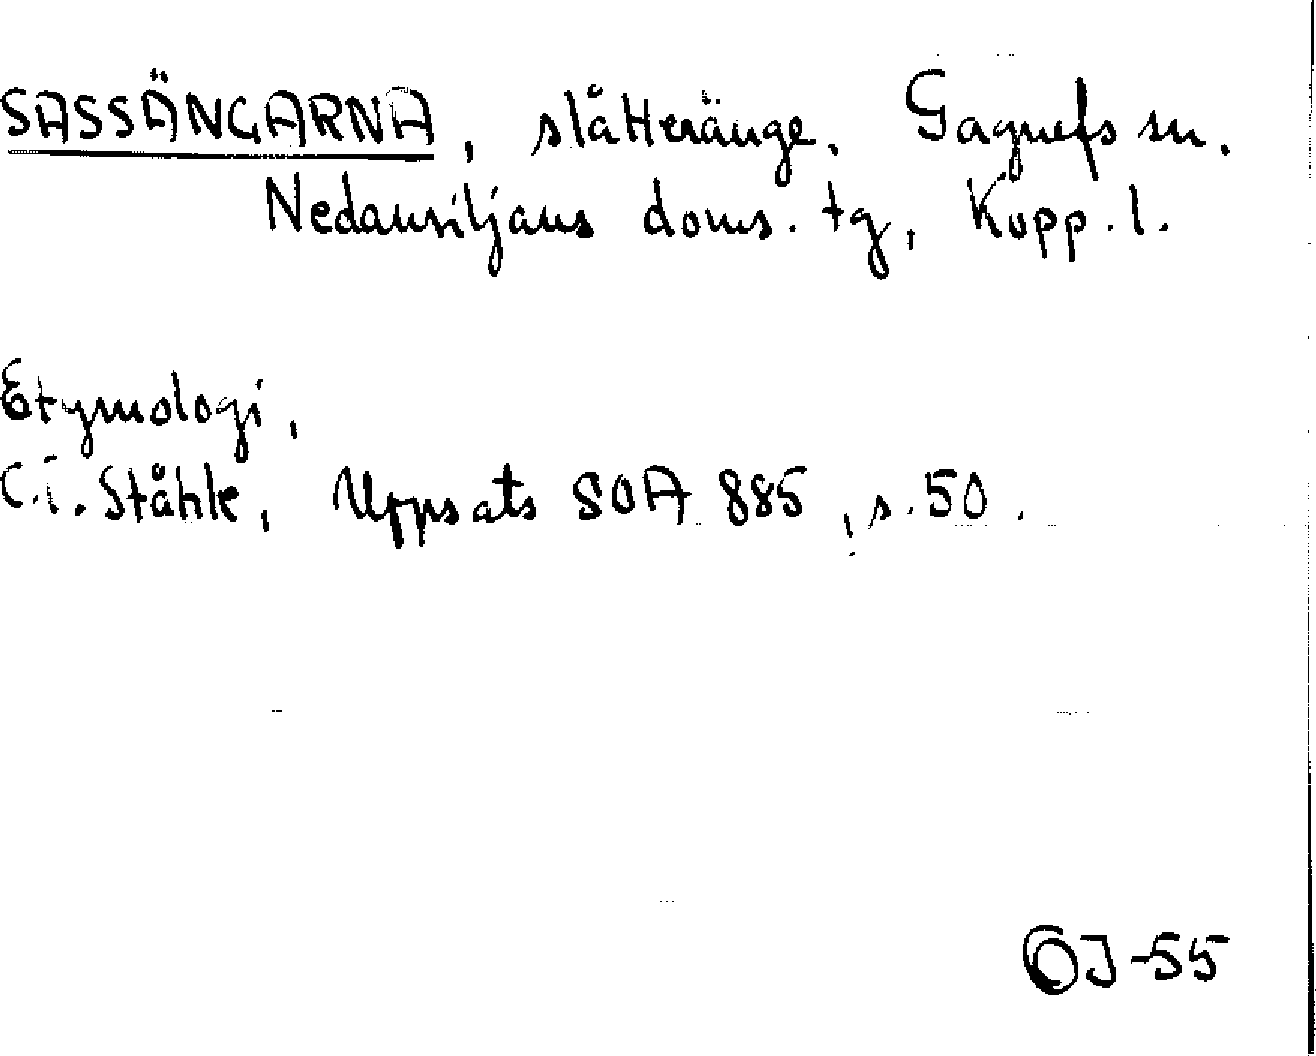 SASSÄNGARNA, slåtteränge, Gagnefs sn.
Nedansiljans doms. tg, Kopp. l.
Etymologi,
C.I. Ståhle, Uppsats SOA 885, s. 50.
OJ-55